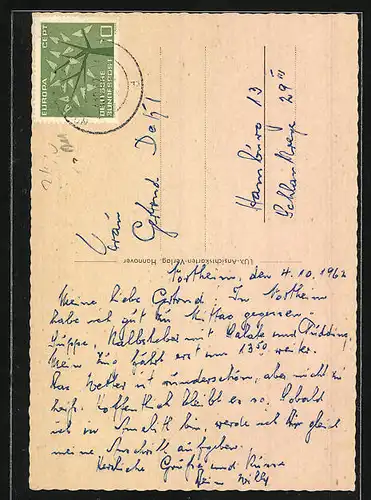 EUROPA CEPT
10
DEUTSCHE
BUNDESPOST
Frau
Gertrud
Hamburg 13
LUX-Ansichtskarten-Verlag Hannover
Northeim, den 4.10.1962
Meine liebe Gertrud. In Northeim
habe ich gut zu Mittag gegessen.
Suppe, Kalbsleber mit Salate und Pudding.
Mein Zug fährt erst um 13 50 weiter.
Das Wetter ist wunderschön, aber nicht zu
heiß. Hoffentlich bleibt es so. Sobald
ich in bin, werde ich Dir gleich
meine Anschrift aufgeben.
Herzliche Grüße und Küsse
Dein Willy